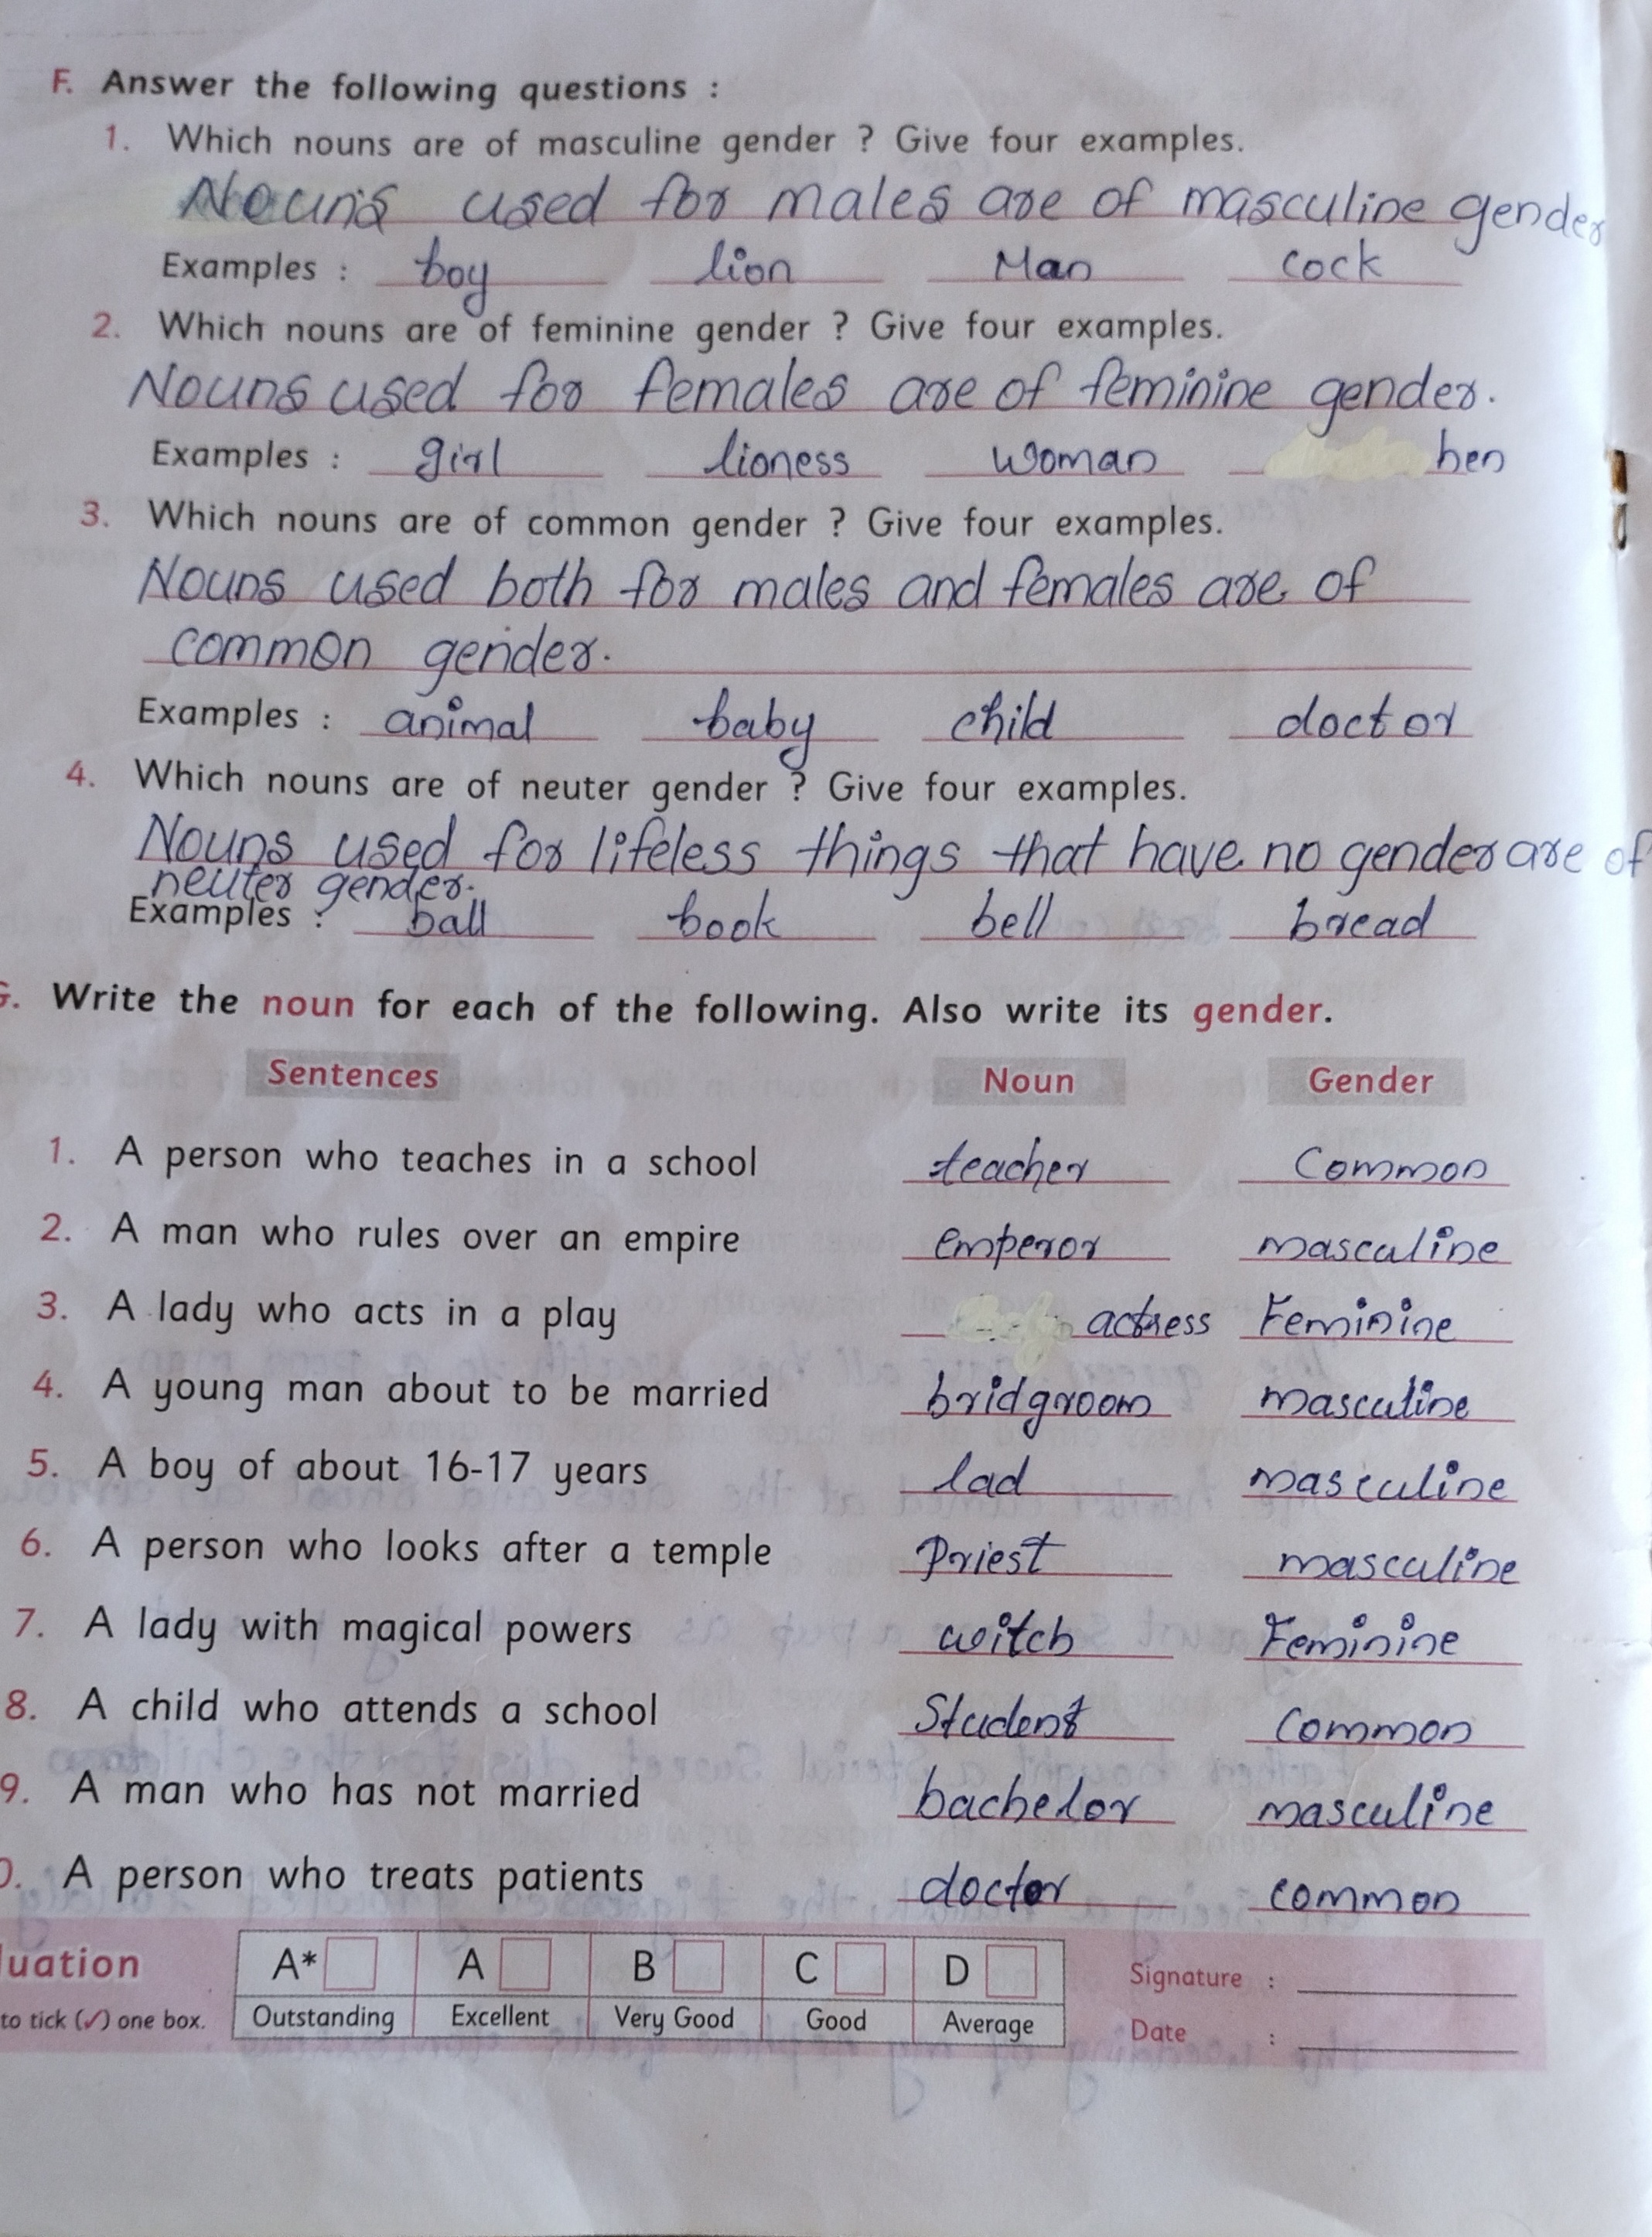 F. Answer the following questions :
1. Which nouns are of masculine gender ? Give four examples.
Nouns used for males are of masculine gender
Examples : boy lion Man cock
2. Which nouns are of feminine gender ? Give four examples.
Nouns used for females are of feminine gender.
Examples : girl lioness woman hen
3. Which nouns are of common gender ? Give four examples.
Nouns used both for males and females are of
common gender.
Examples : animal baby child doctor
4. Which nouns are of neuter gender ? Give four examples.
Nouns used for lifeless things that have no gender are of
neuter gender.
Examples : ball book bell bread
G. Write the noun for each of the following. Also write its gender.
Sentences Noun Gender
1. A person who teaches in a school teacher Common
2. A man who rules over an empire emperor masculine
3. A lady who acts in a play actress Feminine
4. A young man about to be married bridgroom masculine
5. A boy of about 16-17 years lad masculine
6. A person who looks after a temple Priest masculine
7. A lady with magical powers witch Feminine
8. A child who attends a school Student common
9. A man who has not married bachelor masculine
0. A person who treats patients doctor common
luation A* A B C D Signature :
to tick (✓) one box. Outstanding Excellent Very Good Good Average Date :